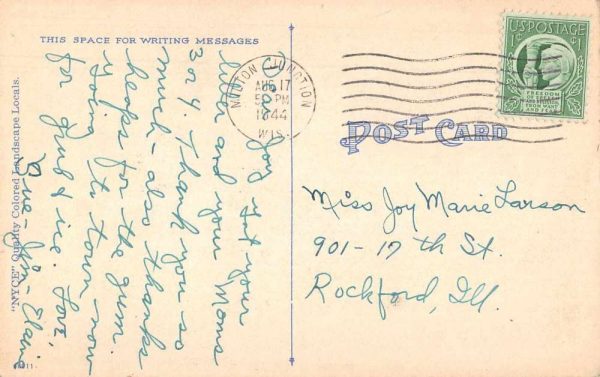 THIS SPACE FOR WRITING MESSAGES
Dear
Joy got your
letter and your Moms
Thank you so
much - also thanks
heaps for the gum.
going to town - now
for grub & ice. Love,
Jim - Elaine
"NYCE" Quality Colored Landscape Locals.
MILTON JUNCTION
AUG 17
PM
1944
WIS.
U.S. POSTAGE
1¢ 1¢
FREEDOM
OF SPEECH
AND RELIGION,
FROM WANT
AND FEAR
POST CARD
Miss Joy Marie Larson
901-17 th St.
Rockford, Ill.